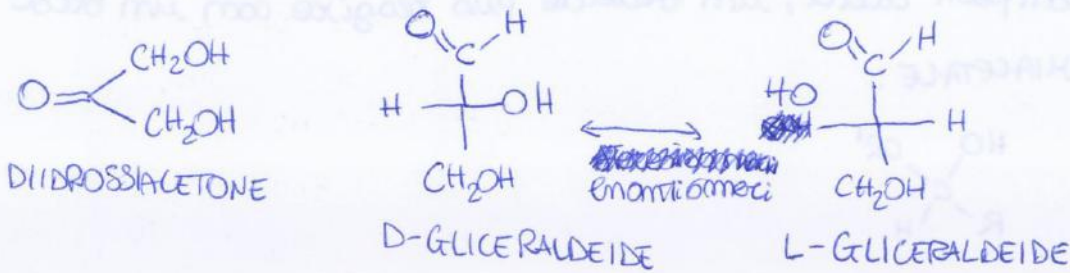 CH₂OH
O=
CH₂OH
DIIDROSSIACETONE
O
C
H
H
OH
CH₂OH
D-GLICERALDEIDE
enantiomeri
O
C
H
HO
H
CH₂OH
L-GLICERALDEIDE